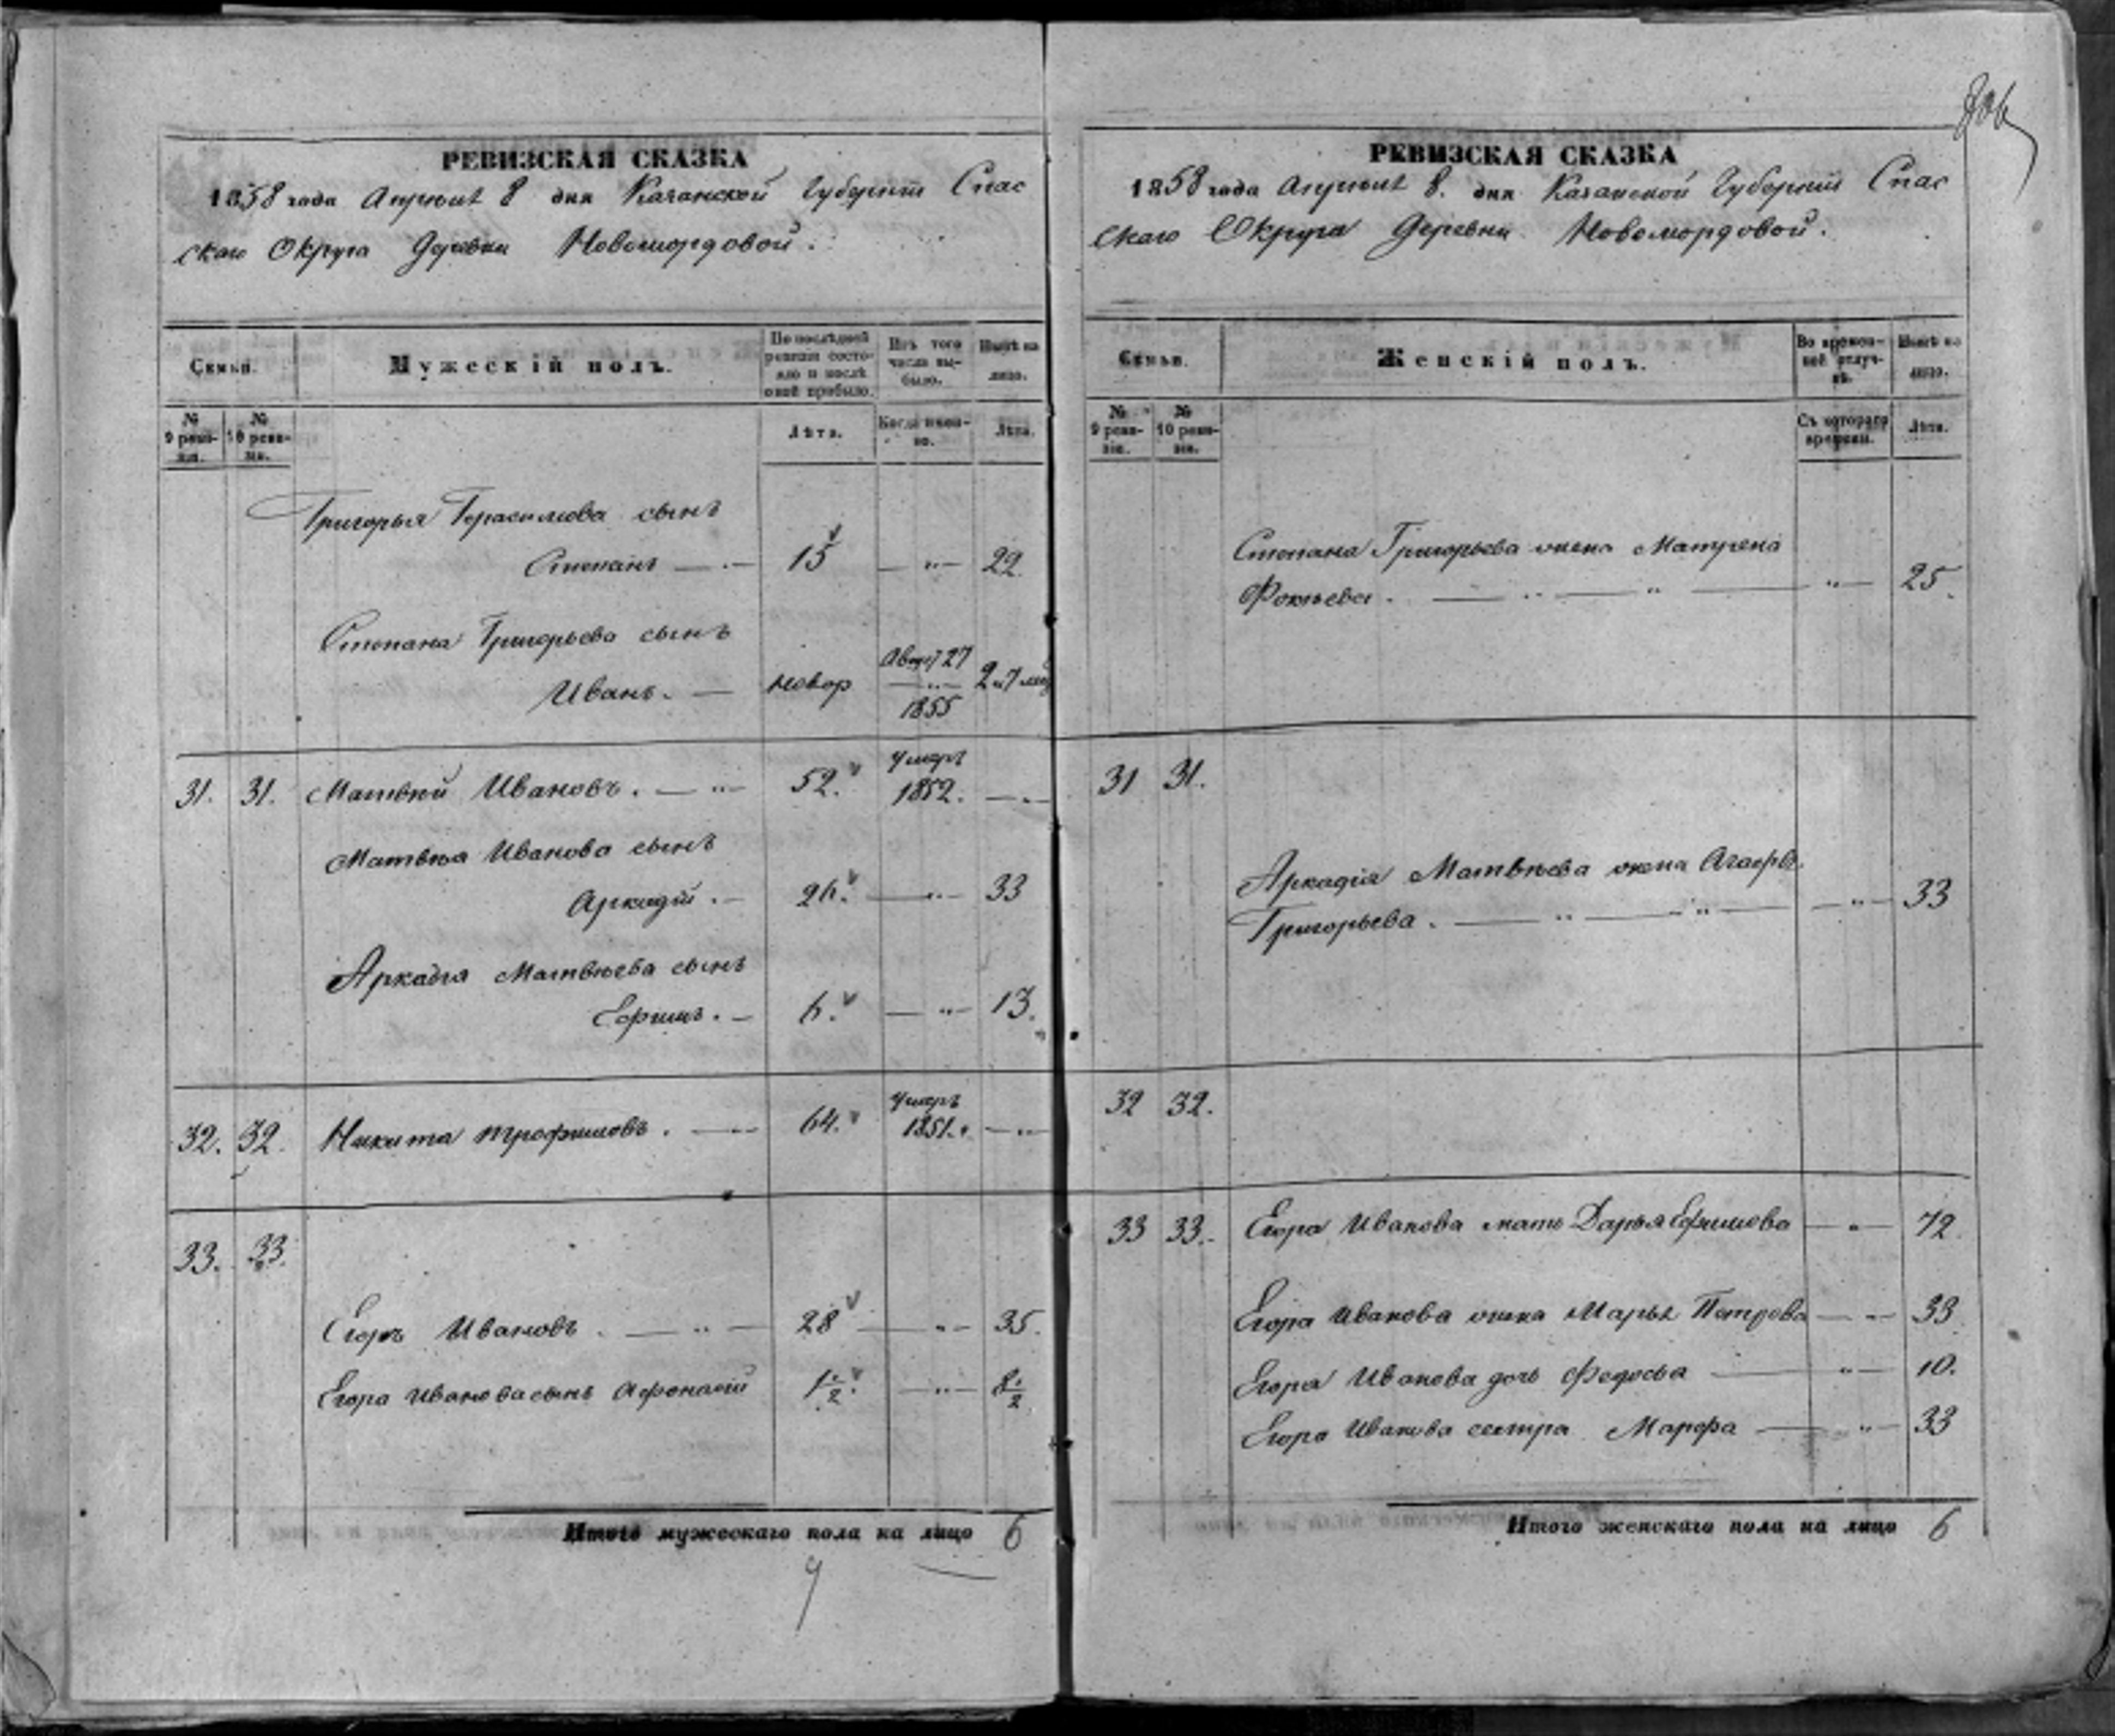 РЕВИЗСКАЯ СКАЗКА
1858 года Апрѣля 8 дня Казанской Губерніи Спас
скаго Округа Деревни Новомордовой.
Семьи.
Мужескій полъ.
По послѣдней ревизіи состояло и послѣ оной прибыло.
Изъ того числа выбыло.
Нынѣ на лицо.
№ 9 ревизіи.
№ 10 ревизіи.
Лѣта.
Когда именно.
Лѣта.
Григорья Герасимова сынъ
Степанъ 15 22
Степана Григорьева сынъ
Иванъ. новор Авгус 27 1855 2 и 7 мѣ
31. 31. Матвей Ивановъ. 52. умеръ 1852.
Матвѣя Иванова сынъ
Аркадій. 26. 33
Аркадія Матвѣева сынъ
Ефимъ. 6. 13.
32. 32. Никита Трофимовъ. 64. умеръ 1851.
33. 33.
Егоръ Ивановъ. 28 35.
Егора Иванова сынъ Афонасій 1 1/2. 8 1/2
Итого мужескаго пола на лицо 6
9
206
РЕВИЗСКАЯ СКАЗКА
1858 года Апрѣля 8. дня Казанской Губерніи Спас
скаго Округа Деревни Новомордовой.
Семьи.
Женскій полъ.
Во временной отлучкѣ.
Нынѣ на лицо.
№ 9 ревизіи.
№ 10 ревизіи.
Съ котораго времени.
Лѣта.
Степана Григорьева жена Матрена
Фокѣева. 25.
31 31.
Аркадія Матвѣева жена Агафь.
Григорьева. 33
32 32.
33 33. Егора Иванова мать Дарья Ефимова 72.
Егора Иванова жена Марья Петрова 33
Егора Иванова дочь Федосья 10.
Егора Иванова сестра Марфа 33
Итого женскаго пола на лицо 6